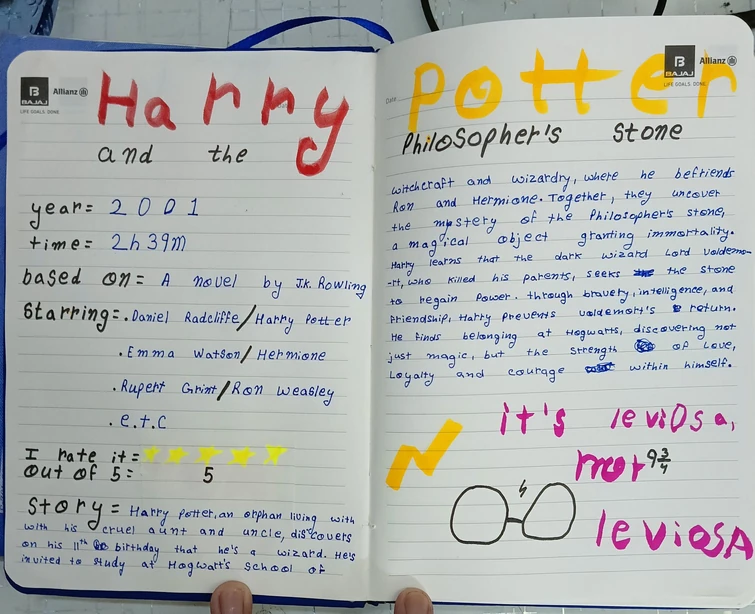 B
BAJAJ
Allianz
LIFE GOALS. DONE.
Harry
and the
year = 2001
time = 2h 39m
based on = A novel by J.K. Rowling
Starring = . Daniel Radcliffe / Harry Potter
. Emma Watson / Hermione
. Rupert Grint / Ron Weasley
. e.t.c
I rate it =
out of 5 = 5
Story = Harry Potter, an orphan living with
with his cruel aunt and uncle, discovers
on his 11th birthday that he's a wizard. He's
invited to study at Hogwarts School of
B
BAJAJ
Allianz
LIFE GOALS. DONE.
Date
Potter
Philosopher's Stone
witchcraft and wizardry, where he befriends
Ron and Hermione. Together, they uncover
the mystery of the Philosopher's stone,
a magical object granting immortality.
Harry learns that the dark wizard Lord Voldemo-
-rt, who killed his parents, seeks the stone
to regain power. through bravery, intelligence, and
Friendship, Harry prevents voldemort's return.
He finds belonging at Hogwarts, discovering not
just magic, but the strength of Love,
Loyalty and courage within himself.
it's leviOsa,
not 9 3/4
leviosA